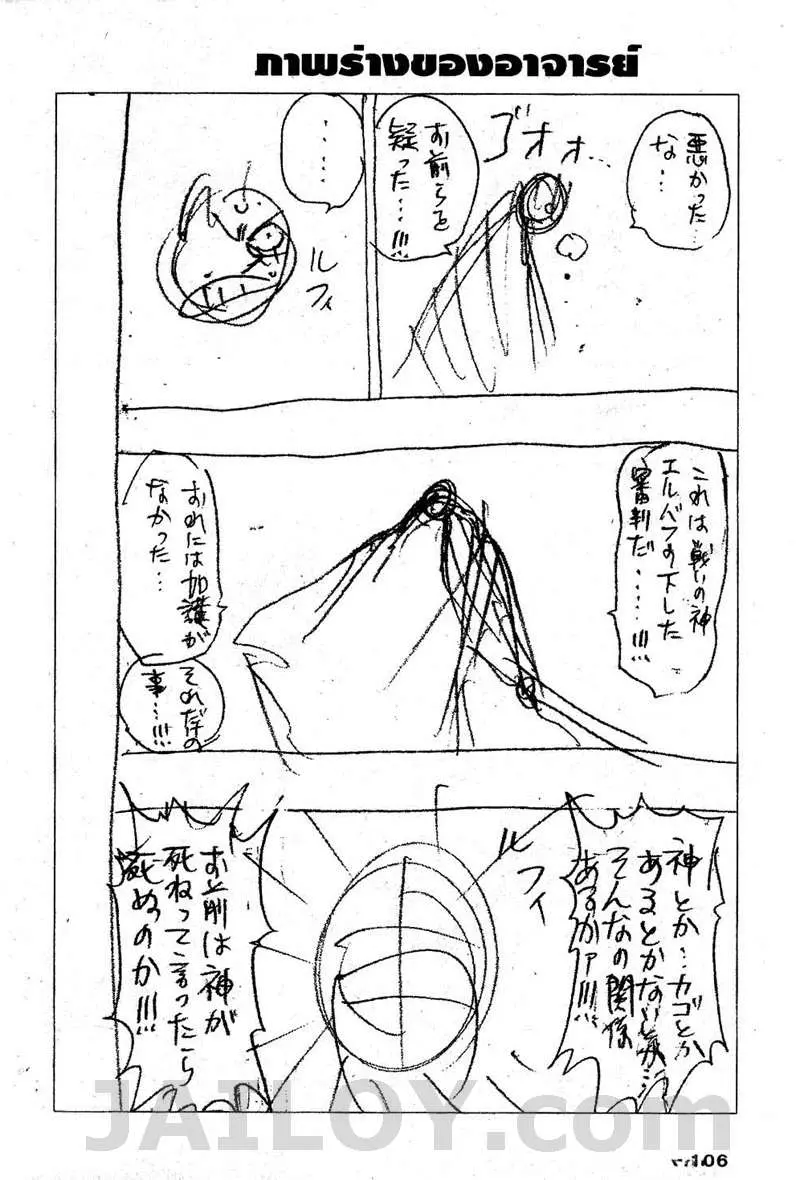 ภาพร่างของอาจารย์
悪かった
な・・・
ゴォォ・・・
お前らを
疑った・・・!!!
・・・・
ルフィ
これは戦いの神
エルバフの下した
審判だ・・・・・!!!
おれには加護が
なかった・・・
それだけの
事・・・!!!
神とか・・・カゴとか
あるとかないとか・・・
そんなの関係
あるかァ!!!
ルフィ
お前は神が
死ねって言ったら
死ぬのか!!!
JAILOY.com
106